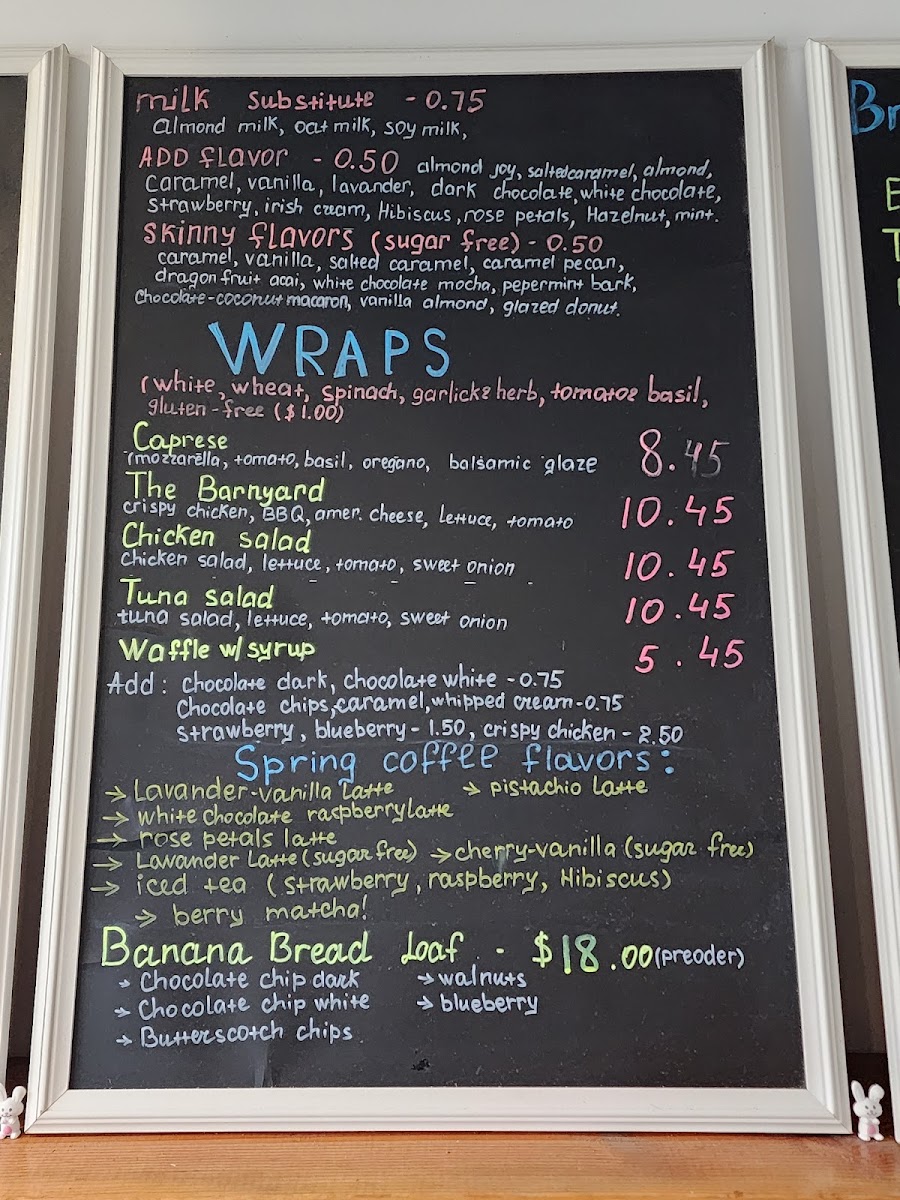 milk substitute - 0.75
almond milk, oat milk, soy milk,
ADD flavor - 0.50 almond joy, salted caramel, almond,
caramel, vanilla, lavander, dark chocolate, white chocolate,
strawberry, irish cream, Hibiscus, rose petals, Hazelnut, mint.
skinny flavors (sugar free) - 0.50
caramel, vanilla, salted caramel, caramel pecan,
dragon fruit acai, white chocolate mocha, pepermint bark,
Chocolate-coconut macaron, vanilla almond, glazed donut.
WRAPS
(white, wheat, spinach, garlick& herb, tomato& basil,
gluten-free ($1.00)
Caprese 8.45
(mozzarella, tomato, basil, oregano, balsamic glaze
The Barnyard 10.45
crispy chicken, BBQ, amer. cheese, lettuce, tomato
Chicken salad 10.45
chicken salad, lettuce, tomato, sweet onion
Tuna salad 10.45
tuna salad, lettuce, tomato, sweet onion
Waffle w/ syrup 5.45
Add: chocolate dark, chocolate white - 0.75
Chocolate chips, caramel, whipped cream - 0.75
strawberry, blueberry - 1.50, crispy chicken - 2.50
Spring coffee flavors:
→ Lavander-vanilla Latte → pistachio Latte
→ white chocolate raspberry latte
→ rose petals latte
→ Lawander Latte (sugar free) → cherry-vanilla (sugar free)
→ iced tea (strawberry, raspberry, Hibiscus)
→ berry matcha!
Banana Bread Loaf - $18.00 (preoder)
→ Chocolate chip dark → walnuts
→ Chocolate chip white → blueberry
→ Butterscotch chips
Br
E
T